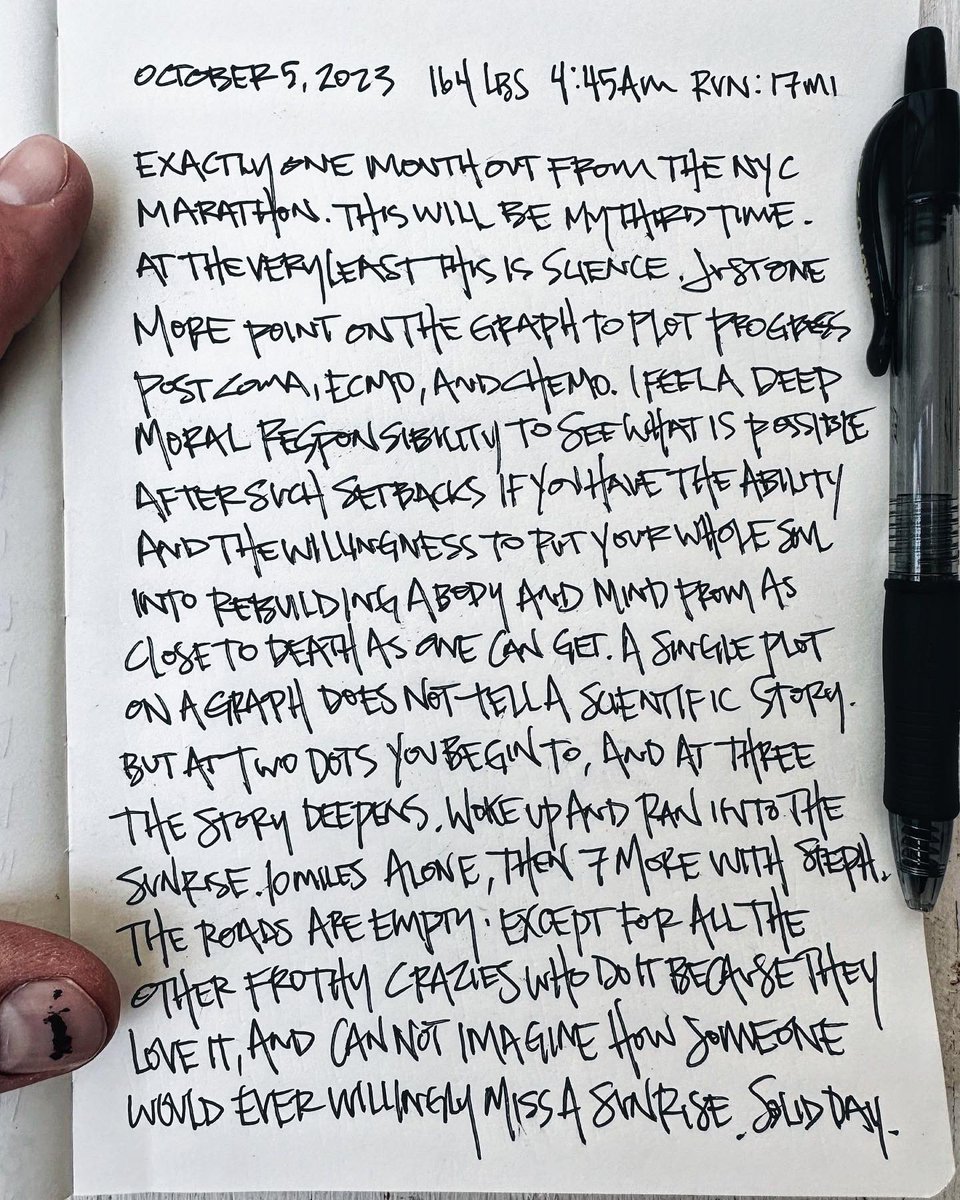 OCTOBER 5, 2023 164 LBS 4:45AM RUN: 17MI
EXACTLY ONE MONTH OUT FROM THE NYC
MARATHON. THIS WILL BE MY THIRD TIME.
AT THE VERY LEAST THIS IS SCIENCE. JUST ONE
MORE POINT ON THE GRAPH TO PLOT PROGRESS
POST COMA, ECMO, AND CHEMO. I FEEL A DEEP
MORAL RESPONSIBILITY TO SEE WHAT IS POSSIBLE
AFTER SUCH SETBACKS IF YOU HAVE THE ABILITY
AND THE WILLINGNESS TO PUT YOUR WHOLE SOUL
INTO REBUILDING A BODY AND MIND FROM AS
CLOSE TO DEATH AS ONE CAN GET. A SINGLE PLOT
ON A GRAPH DOES NOT TELL A SCIENTIFIC STORY.
BUT AT TWO DOTS YOU BEGIN TO, AND AT THREE
THE STORY DEEPENS. WOKE UP AND RAN INTO THE
SUNRISE. 10 MILES ALONE, THEN 7 MORE WITH STEPH.
THE ROADS ARE EMPTY. EXCEPT FOR ALL THE
OTHER FROTHY CRAZIES WHO DO IT BECAUSE THEY
LOVE IT, AND CAN NOT IMAGINE HOW SOMEONE
WOULD EVER WILLINGLY MISS A SUNRISE. SOLID DAY.